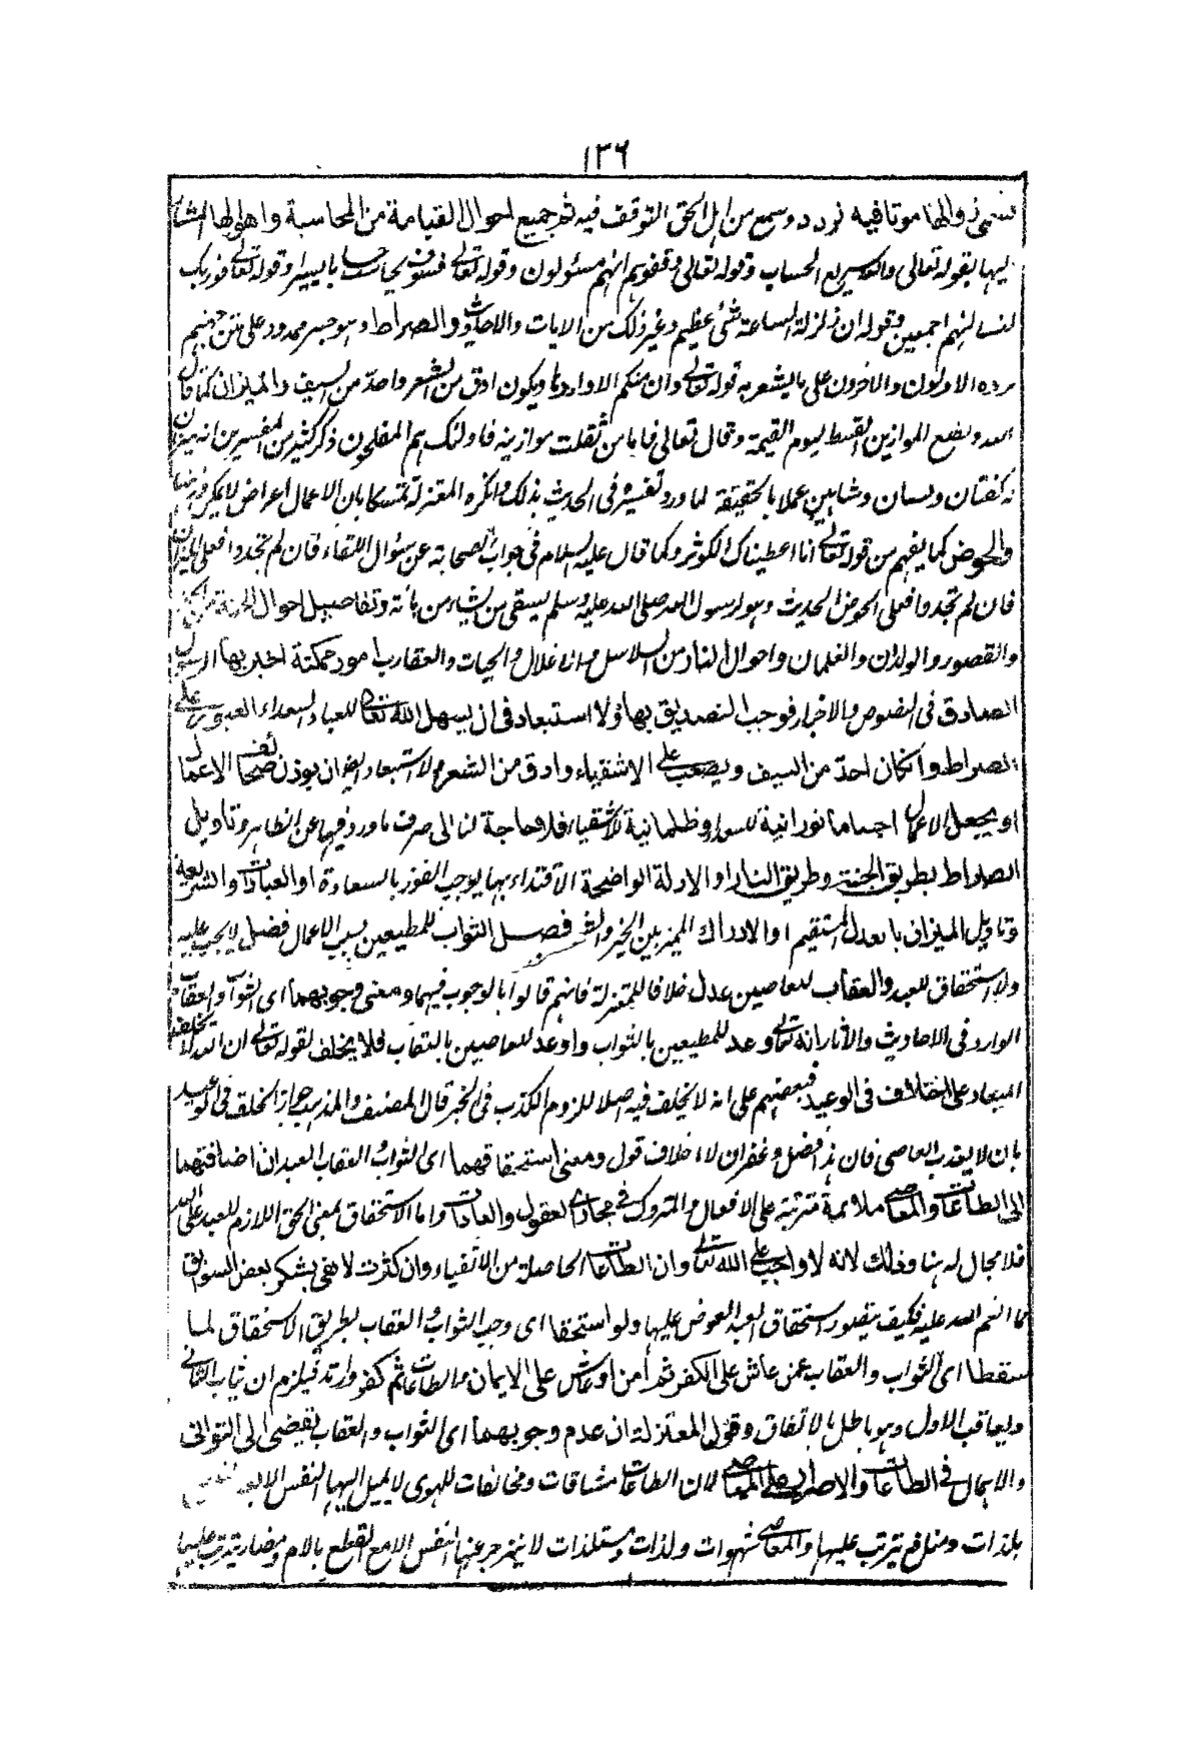 ١٣٦
فيه تردد وسمع من اهل الحق التوقف فيه ثم جميع احوال القيامة من المحاسبة واهوالها المشار
اليها بقوله تعالى والله سريع الحساب وقوله تعالى وقفوهم انهم مسئولون وقوله تعالى فسوف يحاسب حسابا يسيرا وقوله تعالى فوربك
لنسالنهم اجمعين وقوله ان زلزلة الساعة شئ عظيم وغير ذلك من الايات والاحاديث والصراط وهو جسر ممدود على متن جهنم
يرده الاولون والاخرون على ما يشعر به قوله تعالى وان منكم الا واردها ويكون ادق من الشعر واحد من السيف والميزان كما قال
الله ونضع الموازين القسط ليوم القيمة وقال تعالى فاما من ثقلت موازينه فاولئك هم المفلحون ذكر كثير من المفسرين انه ميزان
له كفتان ولسان وشاهين عملا بالحقيقة لما ورد تفسيره فى الحديث بذلك وانكره المعتزلة تمسكا بان الاعمال اعراض لا يمكن وزنها
والحوض كما يفهم من قوله تعالى انا اعطيناك الكوثر وكما قال عليه السلام فى جواب الصحابة عن سؤال اللقاء فان لم تجدوا فعلى الميزان
فان لم تجدوا فعلى الحوض الحديث وهو لرسول الله صلى الله عليه وسلم يسقى من يشاء من مائه وتفاصيل احوال الجنة من
والقصور والولدان والغلمان واحوال النار من السلاسل والاغلال والحيات والعقارب امور ممكنة اخبر بها الرسول
الصادق فى النصوص والاخبار فوجب التصديق بها ولا استبعاد فى ان يسهل الله تعالى للعباد السعداء العبور على
الصراط وان كان احد من السيف ويصعب على الاشقياء وادق من الشعر ولا استبعاد ايضا ان يوزن صحائف الاعمال
او يجعل الاعمال اجساما نورانية للسعداء وظلمانية للاشقياء فلا حاجة لنا الى صرف ما ورد فيها عن الظاهر وتاويل
الصراط بطريق الجنة وطريق النار او الادلة الواضحة الاقتداء بها يوجب الفوز بالسعادة او العبادات والشريعة
وتاويل الميزان بالعدل المستقيم او الادراك المميز بين الخير والشر فصل الثواب للمطيعين بسبب الاعمال فضل لا يجب عليه
ولا استحقاق للعبد والعقاب للعاصين عدل خلافا للمعتزلة فانهم قالوا بالوجوب فيهما ومعنى وجوبهما اى الثواب والعقاب
الوارد فى الاحاديث والاثار انه تعالى وعد للمطيعين بالثواب واوعد للعاصين بالعقاب فلا يخلف لقوله تعالى ان الله لا يخلف
الميعاد على اختلاف فى الوعيد فبعضهم على انه لا يخلف فيه اصلا للزوم الكذب فى الخبر قال المصنف والمذهب جواز الخلف فى الوعيد
بان لا يعذب العاصى فان هذا فضل وغفران لا اخلاف قول ومعنى استحقاقهما اى الثواب والعقاب العبد ان اضافتهما
الى الطاعات والمعاصى ملائمة مترتبة على الافعال والتروك فى مجارى العقول والعادات واما الاستحقاق بمعنى الحق اللازم للعبد على الله
فلا مجال له هنا وذلك لانه لا واجب على الله تعالى وان الطاعات الحاصلة من الاتقياء وان كثرت لا تفى بشكر بعض السوابق
مما انعم الله عليه فكيف يتصور استحقاق العبد العوض عليها ولو استحقا اى وجب الثواب والعقاب بطريق الاستحقاق لما
سقطا اى الثواب والعقاب عمن عاش على الكفر ثم آمن او عاش على الايمان والطاعات ثم كفر وارتد فيلزم ان يثاب الثانى
ويعاقب الاول وهو باطل بالاتفاق وقول المعتزلة ان عدم وجوبهما اى الثواب والعقاب يفضى الى التوانى
والاهمال فى الطاعات والاصرار على المعاصى لان الطاعات مشاقات ومخالفات للهوى لا يميل اليها النفس الا بعد
بلذات ومنافع يترتب عليها والمعاصى شهوات ولذات ومستلذات لا ينزجر عنها النفس الا مع القطع بالام ومضار يترتب عليها